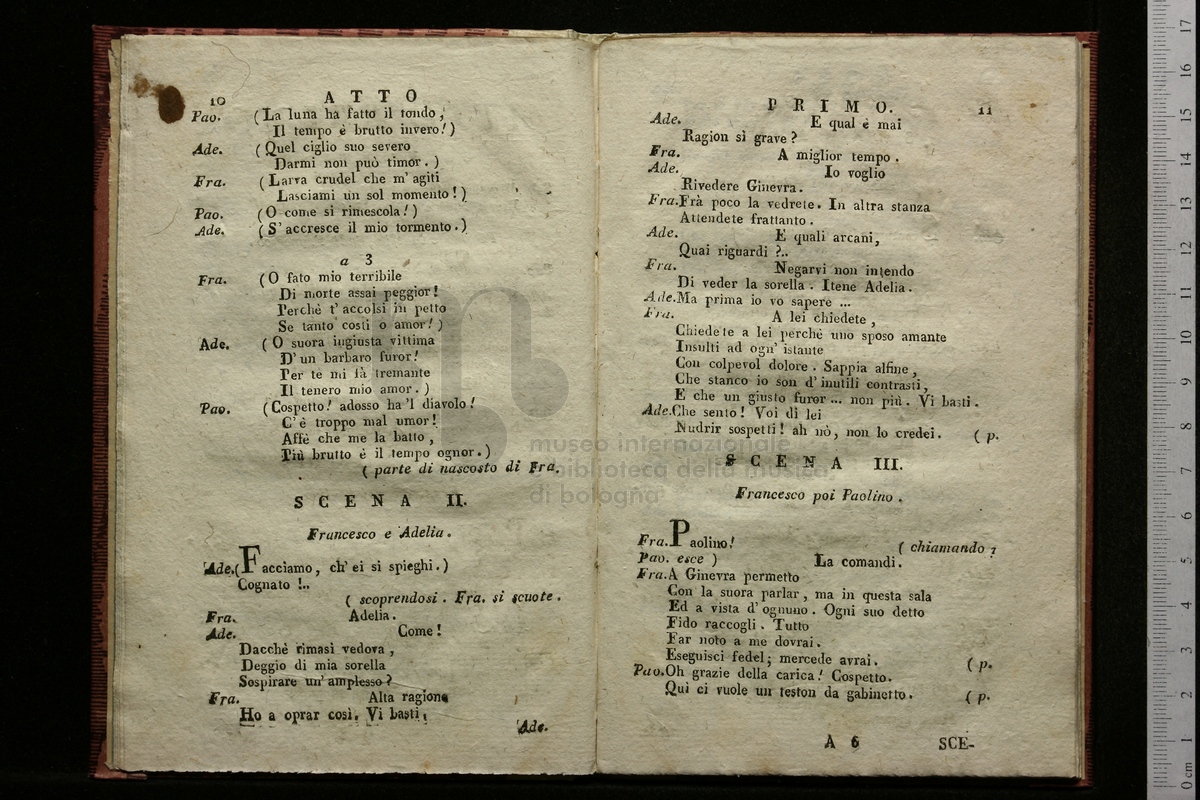 10 ATTO
Pao. (La luna ha fatto il tondo,
Il tempo è brutto invero!)
Ade. (Quel ciglio suo severo
Darmi non può timor.)
Fra. (Larva crudel che m'agiti
Lasciami un sol momento!)
Pao. (O come si rimescola!)
Ade. (S'accresce il mio tormento.)
a 3
Fra. (O fato mio terribile
Di morte assai peggior!
Perchè t'accolsi in petto
Se tanto costi o amor!)
Ade. (O suora ingiusta vittima
D'un barbaro furor!
Per te mi fà tremante
Il tenero mio amor.)
Pao. (Cospetto! adosso ha 'l diavolo!
C'è troppo mal umor!
Affè che me la batto,
Più brutto è il tempo ognor.)
(parte di nascosto di Fra.
SCENA II.
Francesco e Adelia.
Ade. (Facciamo, ch'ei si spieghi.)
Cognato!..
(scoprendosi. Fra. si scuote.
Fra. Adelia.
Ade. Come!
Dacchè rimasi vedova,
Deggio di mia sorella
Sospirare un'amplesso?
Fra. Alta ragione
Ho a oprar così. Vi basti.
Ade.
PRIMO. 11
Ade. E qual è mai
Ragion sì grave?
Fra. A miglior tempo.
Ade. Io voglio
Rivedere Ginevra.
Fra. Frà poco la vedrete. In altra stanza
Attendete frattanto.
Ade. E quali arcani,
Quai riguardi?..
Fra. Negarvi non intendo
Di veder la sorella. Itene Adelia.
Ade. Ma prima io vo sapere ...
Fra. A lei chiedete,
Chiedete a lei perchè uno sposo amante
Insulti ad ogn'istante
Con colpevol dolore. Sappia alfine,
Che stanco io son d'inutili contrasti,
E che un giusto furor ... non più. Vi basti.
Ade. Che sento! Voi di lei
Nudrir sospetti! ah nò, non lo credei. (p.
SCENA III.
Francesco poi Paolino.
Fra. Paolino! (chiamando
Pao. esce) La comandi.
Fra. A Ginevra permetto
Con la suora parlar, ma in questa sala
Ed a vista d'ognuno. Ogni suo detto
Fido raccogli. Tutto
Far noto a me dovrai.
Eseguisci fedel; mercede avrai. (p.
Pao. Oh grazie della carica! Cospetto.
Quì ci vuole un teston da gabinetto. (p.
A 6 SCE-
museo internazionale
e biblioteca della musica
di bologna
0 cm 1 2 3 4 5 6 7 8 9 10 11 12 13 14 15 16 17